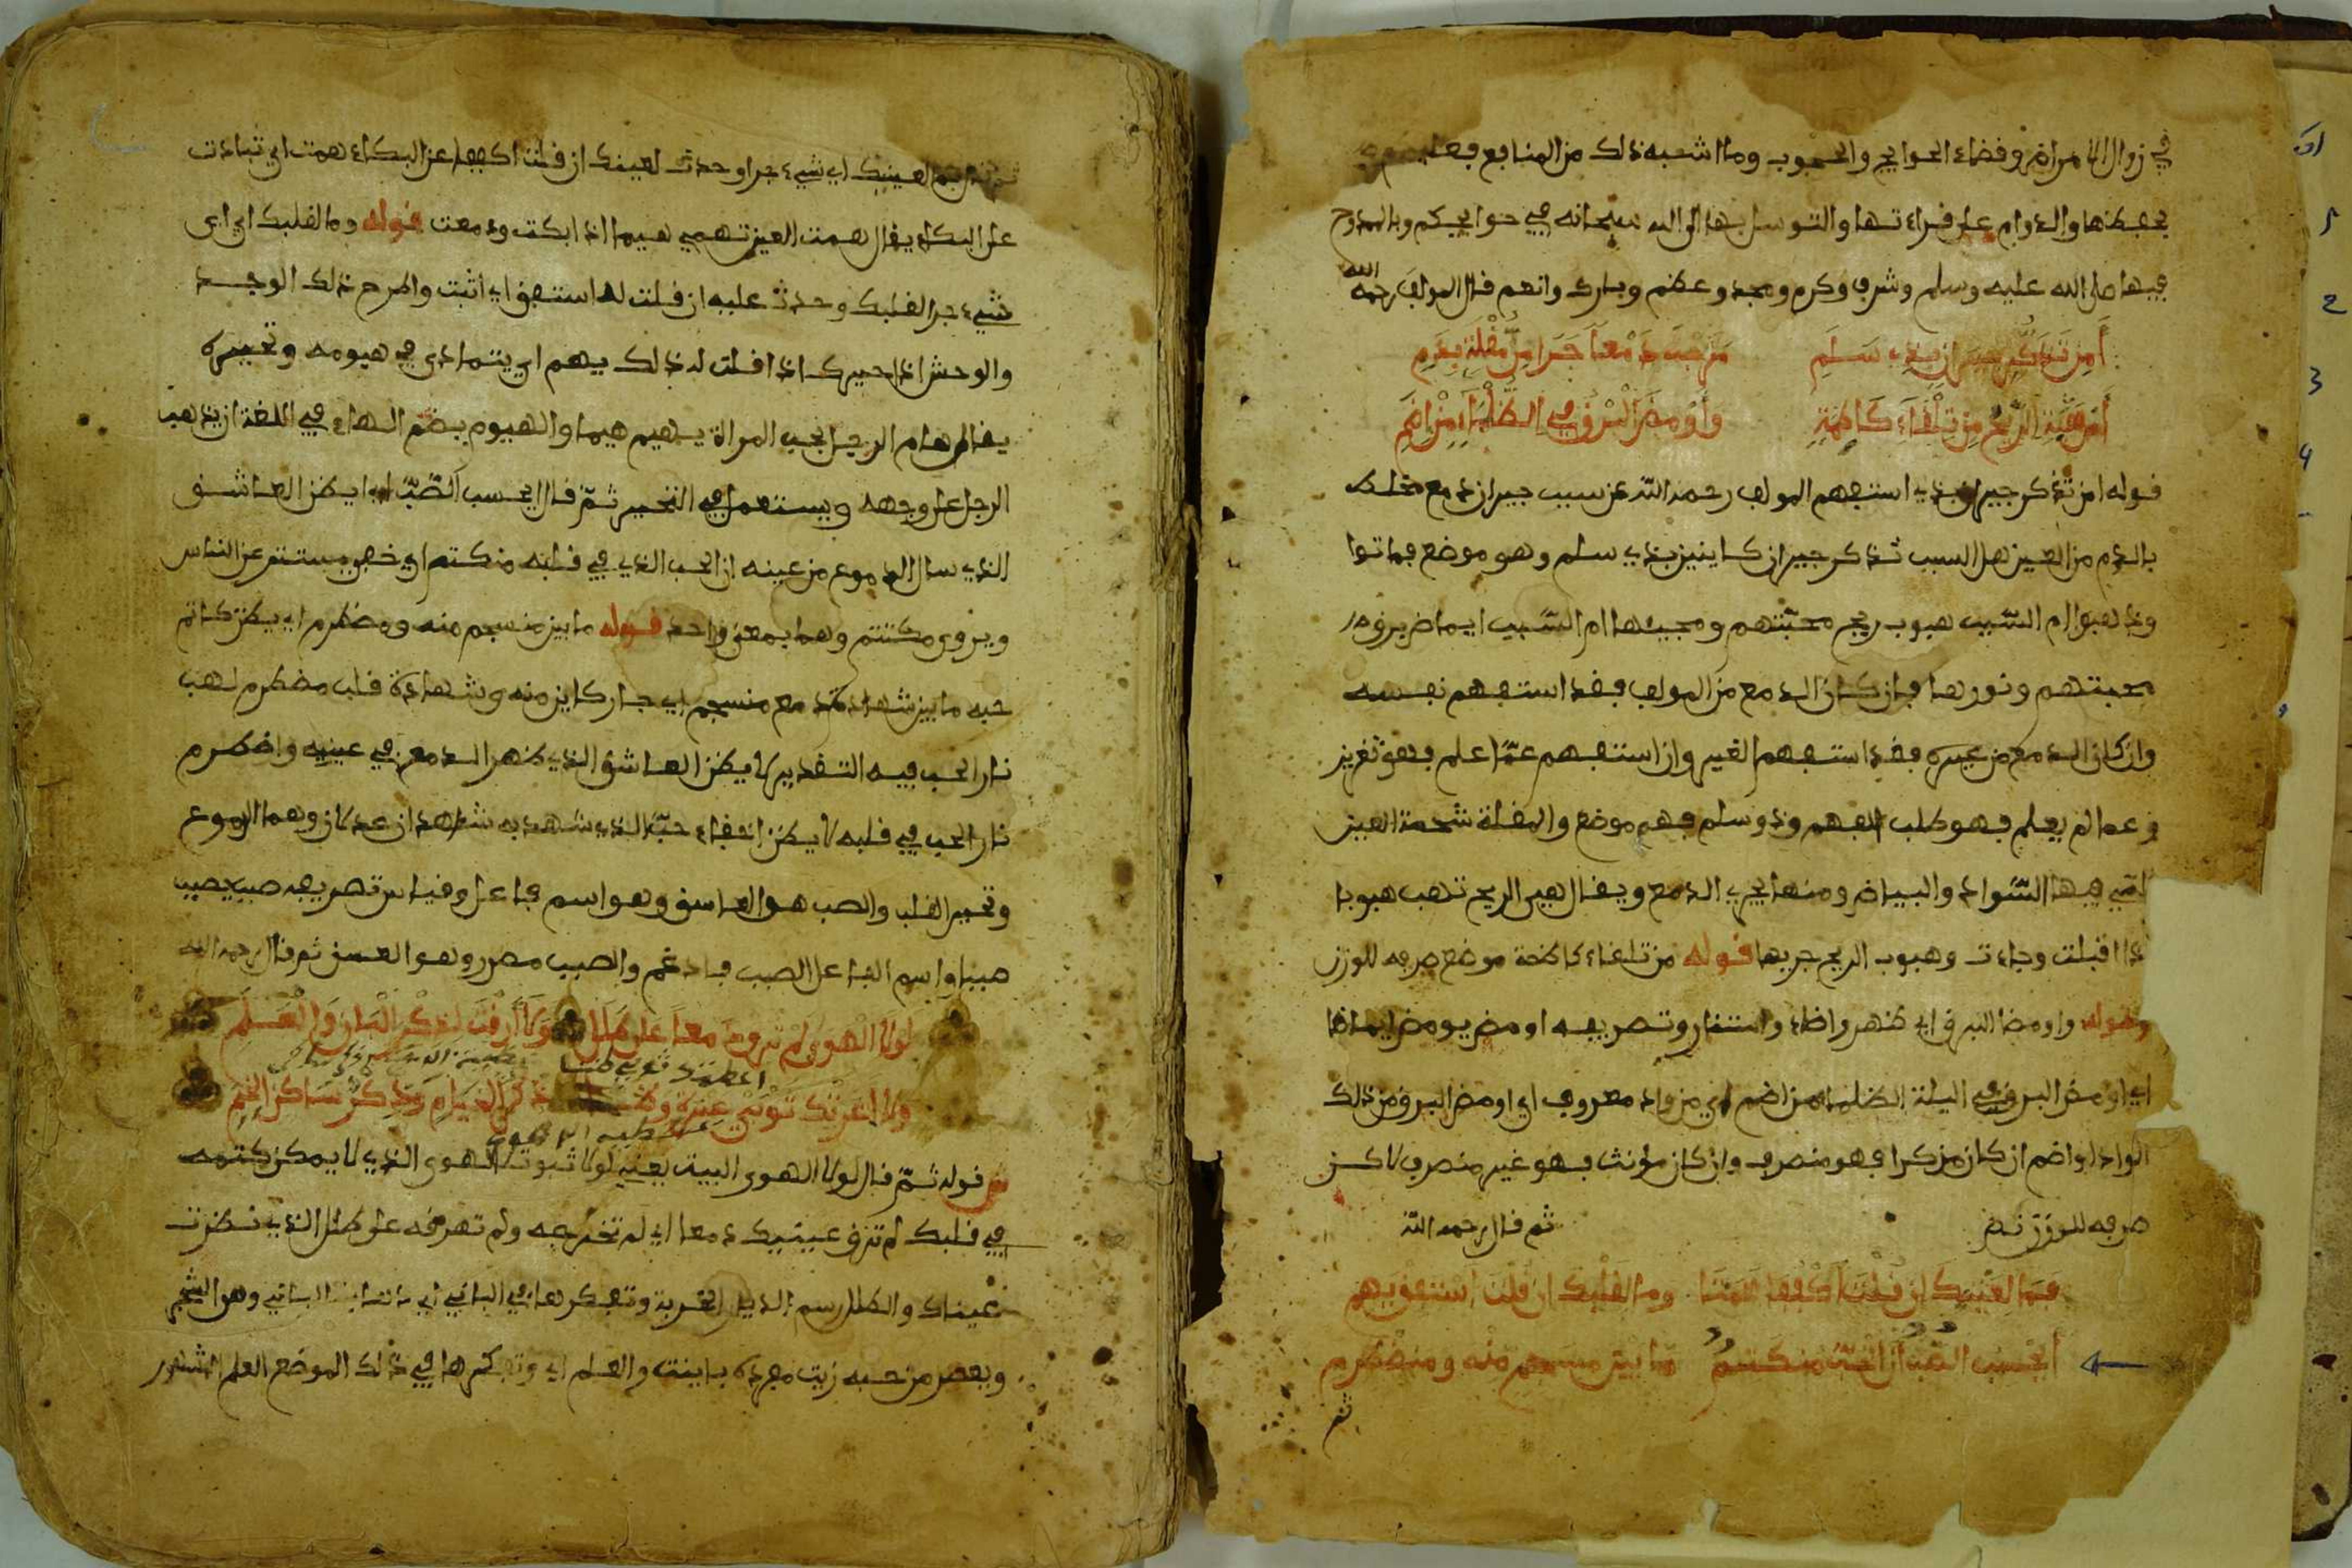 في زوال الامراض وفضاء الحوايج والحبوب وما اشبه ذلك من المنابع فعليكم
بحفظها والدوام على قراءتها والتوسل بها الى الله سبحانه في حوايجكم وبالممدوح
فيها صلى الله عليه وسلم وشرف وكرم ومجد وعظم وبارك وانعم قال المولف رحمه الله
أمن تذكر جيران بذي سلم مزجت دمعا جرا من مقلة بدم
أم هبت الريح من تلقاء كاظمة وأومض البرق في الظلماء من إضم
قوله امن تذكر جيران بذي استفهم المولف رحمه الله عن سبب جيران دمع مختلط
بالدم من العين هل السبب تذكر جيران كاينين بذي سلم وهو موضع فماتوا
وذهبوا ام السبب هبوب ريح محبتهم ومجيئها ام السبب ايماض بروق
محبتهم ونورها فان كان الدمع من المولف فقد استفهم نفسه
وان كان الدمع من غيره فقد استفهم الغير وان استفهم عما علم فهو تغرير
وعما لم يعلم فهو طلب الفهم وذو سلم فهم موضع والمقلة شحمة العين
التي فيها السواد والبياض ومنها يجري الدمع ويقال هبي الريح تهب هبوبا
اذا اقبلت وجاءت وهبوب الريح جريها قوله من تلقاء كاظمة موضع صرفه للوزن
وقوله واومض البرق اي ظهر واضاء واستنار وتصريفه اومض يومض ايماضا
اي اومض البرق في اليلة الظلماء من اضم اي من واد معروف اي اومض البرق من ذلك
الواد واضم ان كان مذكرا فهو منصرف وان كان مؤنث فهو غير منصرف لاكن
صرفه للوزن ثم قال رحمه الله
فما لعينيك ان قلت اكففا همتا وما لقلبك ان قلت استفق يهم
أيحسب الصب أن الحب منكتم ما بين منسجم منه ومضطرم
ثم
لعينيك اي شيء جرا وحدث لعينك ان قلت اكففا عن البكاء همت اي تبادت
على البكاء يقال همت العين تهمي هيما اذا ابكت ودمعت قوله وما لقلبك اي اي
شيء جرا لقلبك وحدث عليه ان قلت له استفق اي اثبت واطرح ذلك الوجد
والوحش اذا حيرك اذا قلت له ذلك يهم اي يتمادى في هيومه وتحييره
يقال هام الرجل بحب المراة يهيم هيما والهيوم بضم الهاء في اللغة ان يذهب
الرجل على وجهه ويستعمل في التحير ثم قال ايحسب الصب اي ايظن العاشق
الذي سال الدموع من عينه ان الحب الذي في قلبه منكتم اي خفي مستتر عن الناس
ويروى مكتتم وهما بمعنى واحد قوله ما بين منسجم منه ومضطرم اي يظن كاتم
حبه ما بين شهادة دمع منسجم اي جار كاين منه وشهادة قلب مضطرم لهب
نار الحب فيه التقدير لا يظن العاشق الذي ظهر الدمع في عينيه واضطرم
نار الحب في قلبه لا يظن اخفاء حبه الذي شهد به شاهدان عدلان وهما الدموع
وتحير القلب والصب هو العاسق وهو اسم فاعل وقياس تصريفه صبب يصبب
صببا واسم الفاعل الصبب فادغم والصبب مصدر وهو العسق ثم قال رحمه الله
لولا الهوى لم ترق دمعا على طلل ولا أرقت لذكر البان والعلم
ولا اعرتك ثوبي عبرة وضنا ذكر الخيام وذكر ساكن الخيم
قوله ثم قال لولا الهوى البيت يعني لولا ثبوت الهوى الذي لا يمكن كتمه
في قلبك لم ترق عينيك دمعا اي لم تخرجه ولم تهرقه على طلل الذي نظرت
عيناك والطلل رسم الديار الخربة وتفكرها في الباني اي وهو الشجر
وبعصر من حبه زيت مفرده باينة والعلم اي وتفكرها في ذلك الموضع العلم المشهور